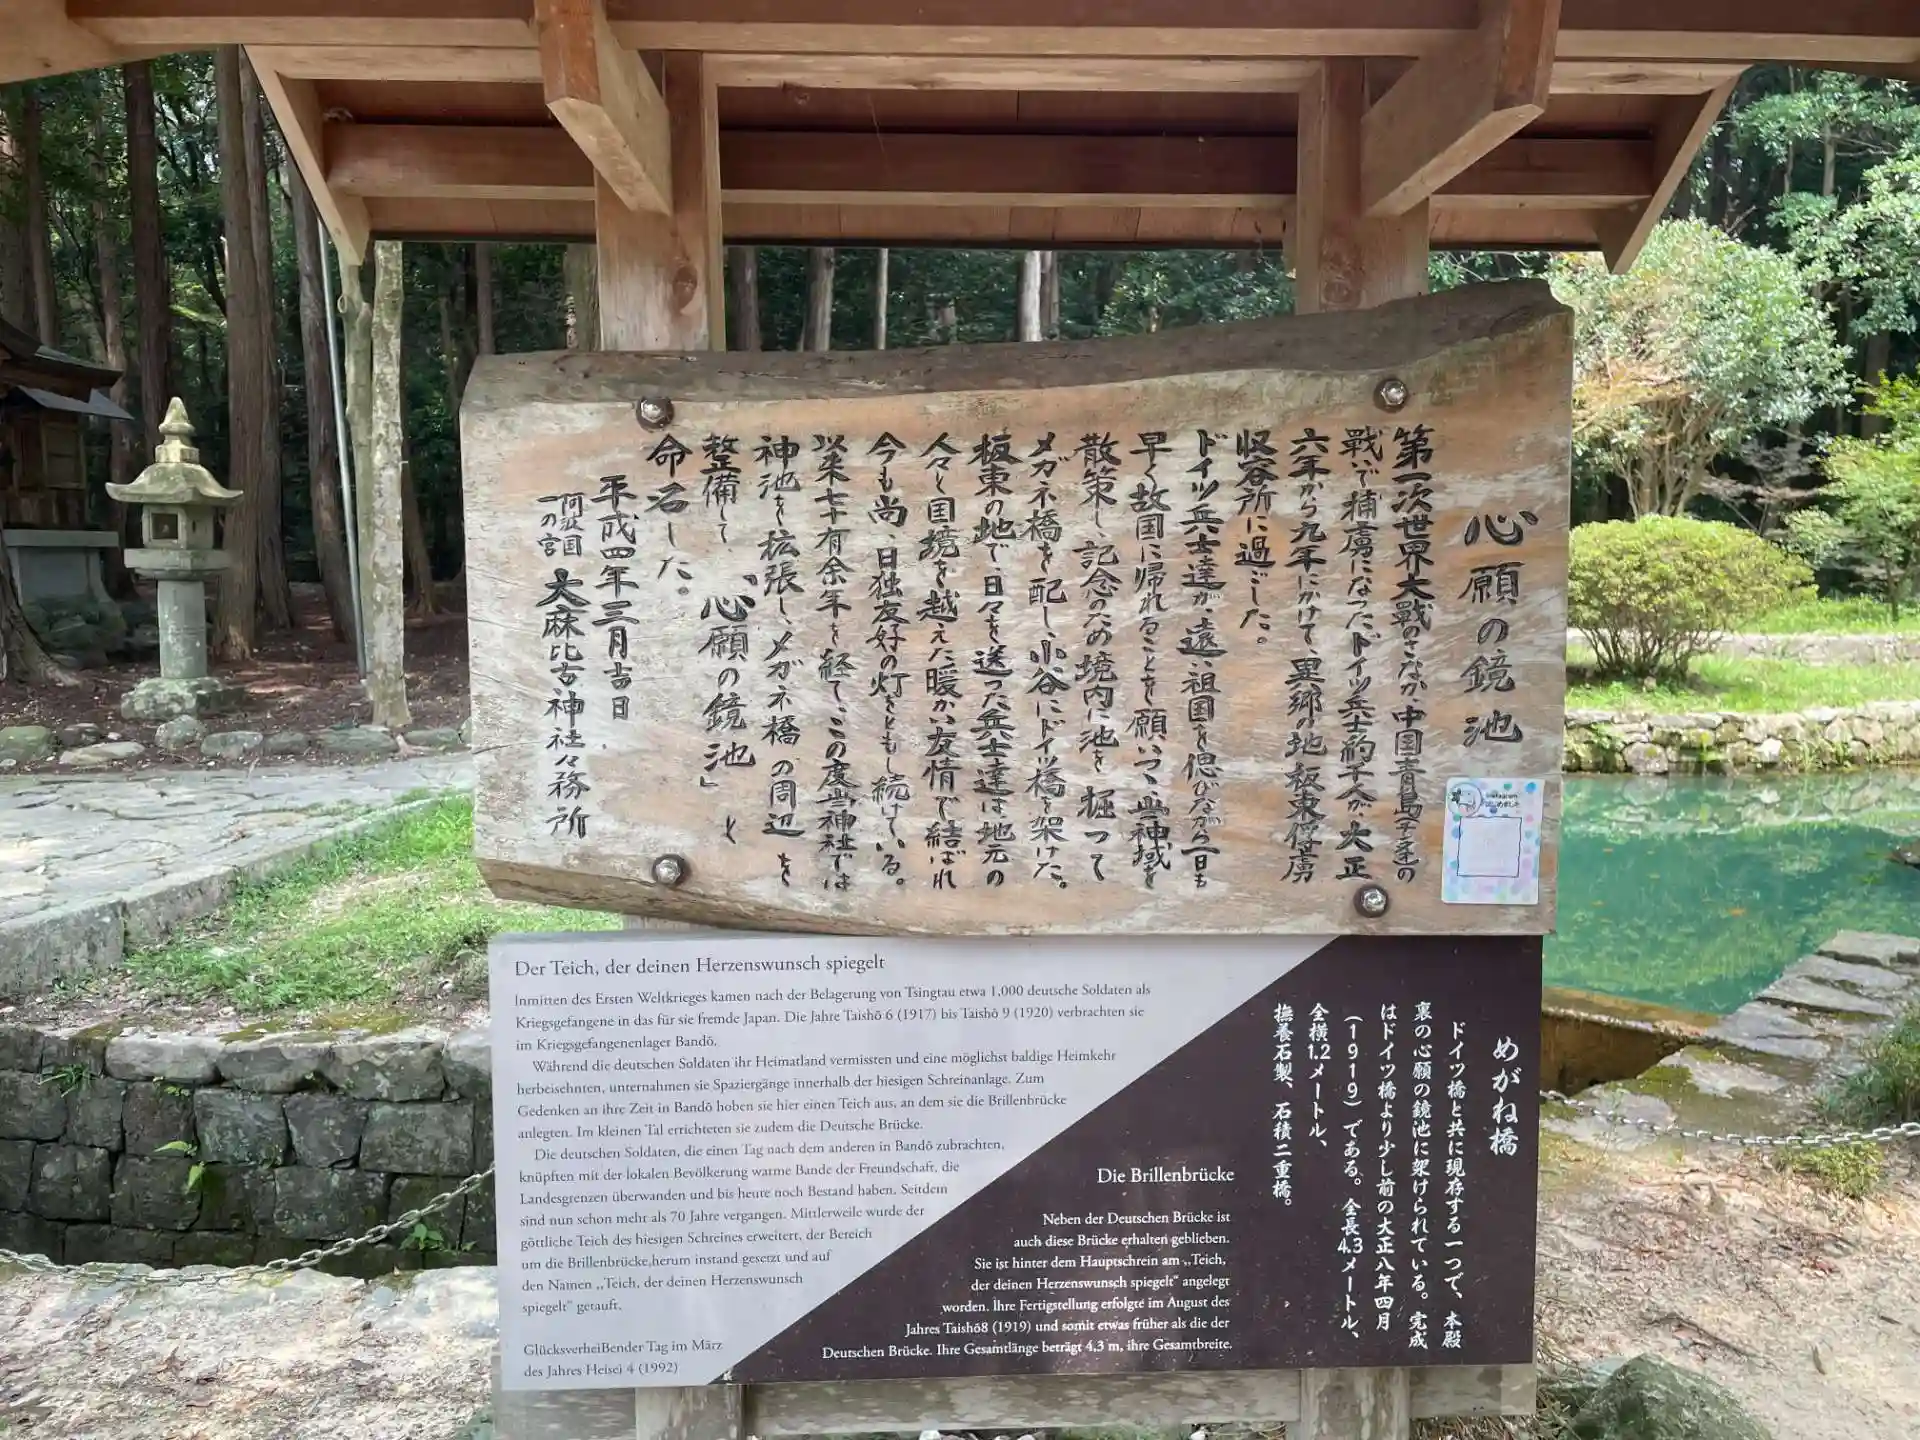 心願の鏡池
第一次世界大戰のさなか、中国青島で
戰いで捕虜になったドイツ兵士約千人が、大正
六年から九年にかけて、異郷の地板東俘虜
収容所に過ごした。
ドイツ兵士達が、遠い祖国を偲びながら一日も
早く故国に帰れることを願いつゝ、当神域を
散策し、記念のため境内に池を掘って
メガネ橋を配し、小谷にドイツ橋を架けた。
板東の地で、日々を送った兵士達は地元の
人々と国境を越えた暖かい友情で結ばれ
今も尚、日独友好の灯をともし続けている。
以来七十有余年を経て、この度当神社では
神池を拡張し、メガネ橋の周辺を
整備して「心願の鏡池」と
命名した。
平成四年三月吉日
阿波国
一の宮
大麻比古神社々務所
Instagram
はじめました
Der Teich, der deinen Herzenswunsch spiegelt
Inmitten des Ersten Weltkrieges kamen nach der Belagerung von Tsingtau etwa 1,000 deutsche Soldaten als
Kriegsgefangene in das für sie fremde Japan. Die Jahre Taishō 6 (1917) bis Taishō 9 (1920) verbrachten sie
im Kriegsgefangenenlager Bandō.
Während die deutschen Soldaten ihr Heimatland vermissten und eine möglichst baldige Heimkehr
herbeisehnten, unternahmen sie Spaziergänge innerhalb der hiesigen Schreinanlage. Zum
Gedenken an ihre Zeit in Bandō hoben sie hier einen Teich aus, an dem sie die Brillenbrücke
anlegten. Im kleinen Tal errichteten sie zudem die Deutsche Brücke.
Die deutschen Soldaten, die einen Tag nach dem anderen in Bandō zubrachten,
knüpften mit der lokalen Bevölkerung warme Bande der Freundschaft, die
Landesgrenzen überwanden und bis heute noch Bestand haben. Seitdem
sind nun schon mehr als 70 Jahre vergangen. Mittlerweile wurde der
göttliche Teich des hiesigen Schreines erweitert, der Bereich
um die Brillenbrücke,herum instand gesetzt und auf
den Namen „Teich, der deinen Herzenswunsch
spiegelt" getauft.
GlücksverheiBender Tag im März
des Jahres Heisei 4 (1992)
Die Brillenbrücke
Neben der Deutschen Brücke ist
auch diese Brücke erhalten geblieben.
Sie ist hinter dem Hauptschrein am „Teich,
der deinen Herzenswunsch spiegelt" angelegt
worden. Ihre Fertigstellung erfolgte im August des
Jahres Taishō8 (1919) und somit etwas früher als die der
Deutschen Brücke. Ihre Gesamtlänge beträgt 4,3 m, ihre Gesamtbreite.
めがね橋
ドイツ橋と共に現存する一つで、本殿
裏の心願の鏡池に架けられている。完成
はドイツ橋より少し前の大正八年四月
(1919)である。全長4.3メートル、
全横1.2メートル、
撫養石製、石積二重橋。